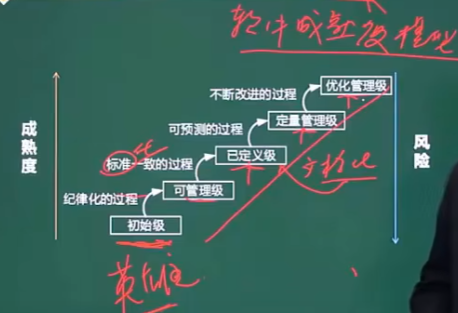 软件成熟度模型
优化管理级
不断改进的过程
定量管理级
可预测的过程
成熟度
风险
化
标准一致的过程
已定义级
纪律化的过程
可管理级
初始级
英雄主